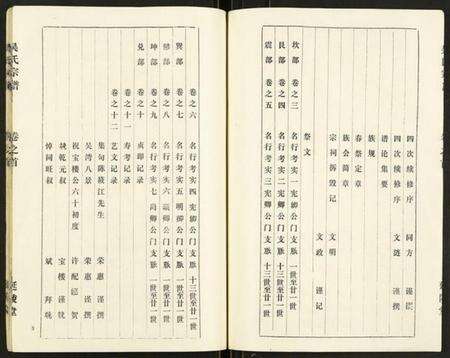 四次续修序 同方 谨撰
四次续修序 文莚 谨撰
谱论集要
族规
春祭定章
族会简章
宗祠拆毁记 文明
文政 谨记
祭文
坎部 卷之三 名行考实一宪卿公门支脉 一世至廿一世
艮部 卷之四 名行考实二宪卿公门支脉 一世至廿一世
震部 卷之五 名行考实三宪卿公门支脉 一世至廿一世
卷之六 名行考实四宪卿公门支脉 十三世至廿一世
巽部 卷之七 名行考实五明卿公门支脉 一世至廿一世
卷之八 名行考实六 卿公门支脉 十三世至廿一世
坤部 卷之九 名行考实七 卿公门支脉 一世至廿一世
兑部 卷之十 贞节记录
卷之十一 寿考记录
卷之十二 艺文记录
集句陈莪江先生 荣惠 谨撰
吴湾八景 荣惠 谨撰
祝宝楼公六十初度 许配 贺
挽乾元叔 宝楼 谨挽
悼同旺叔 斌 拜挽
吴氏宗谱 卷之首 延陵堂